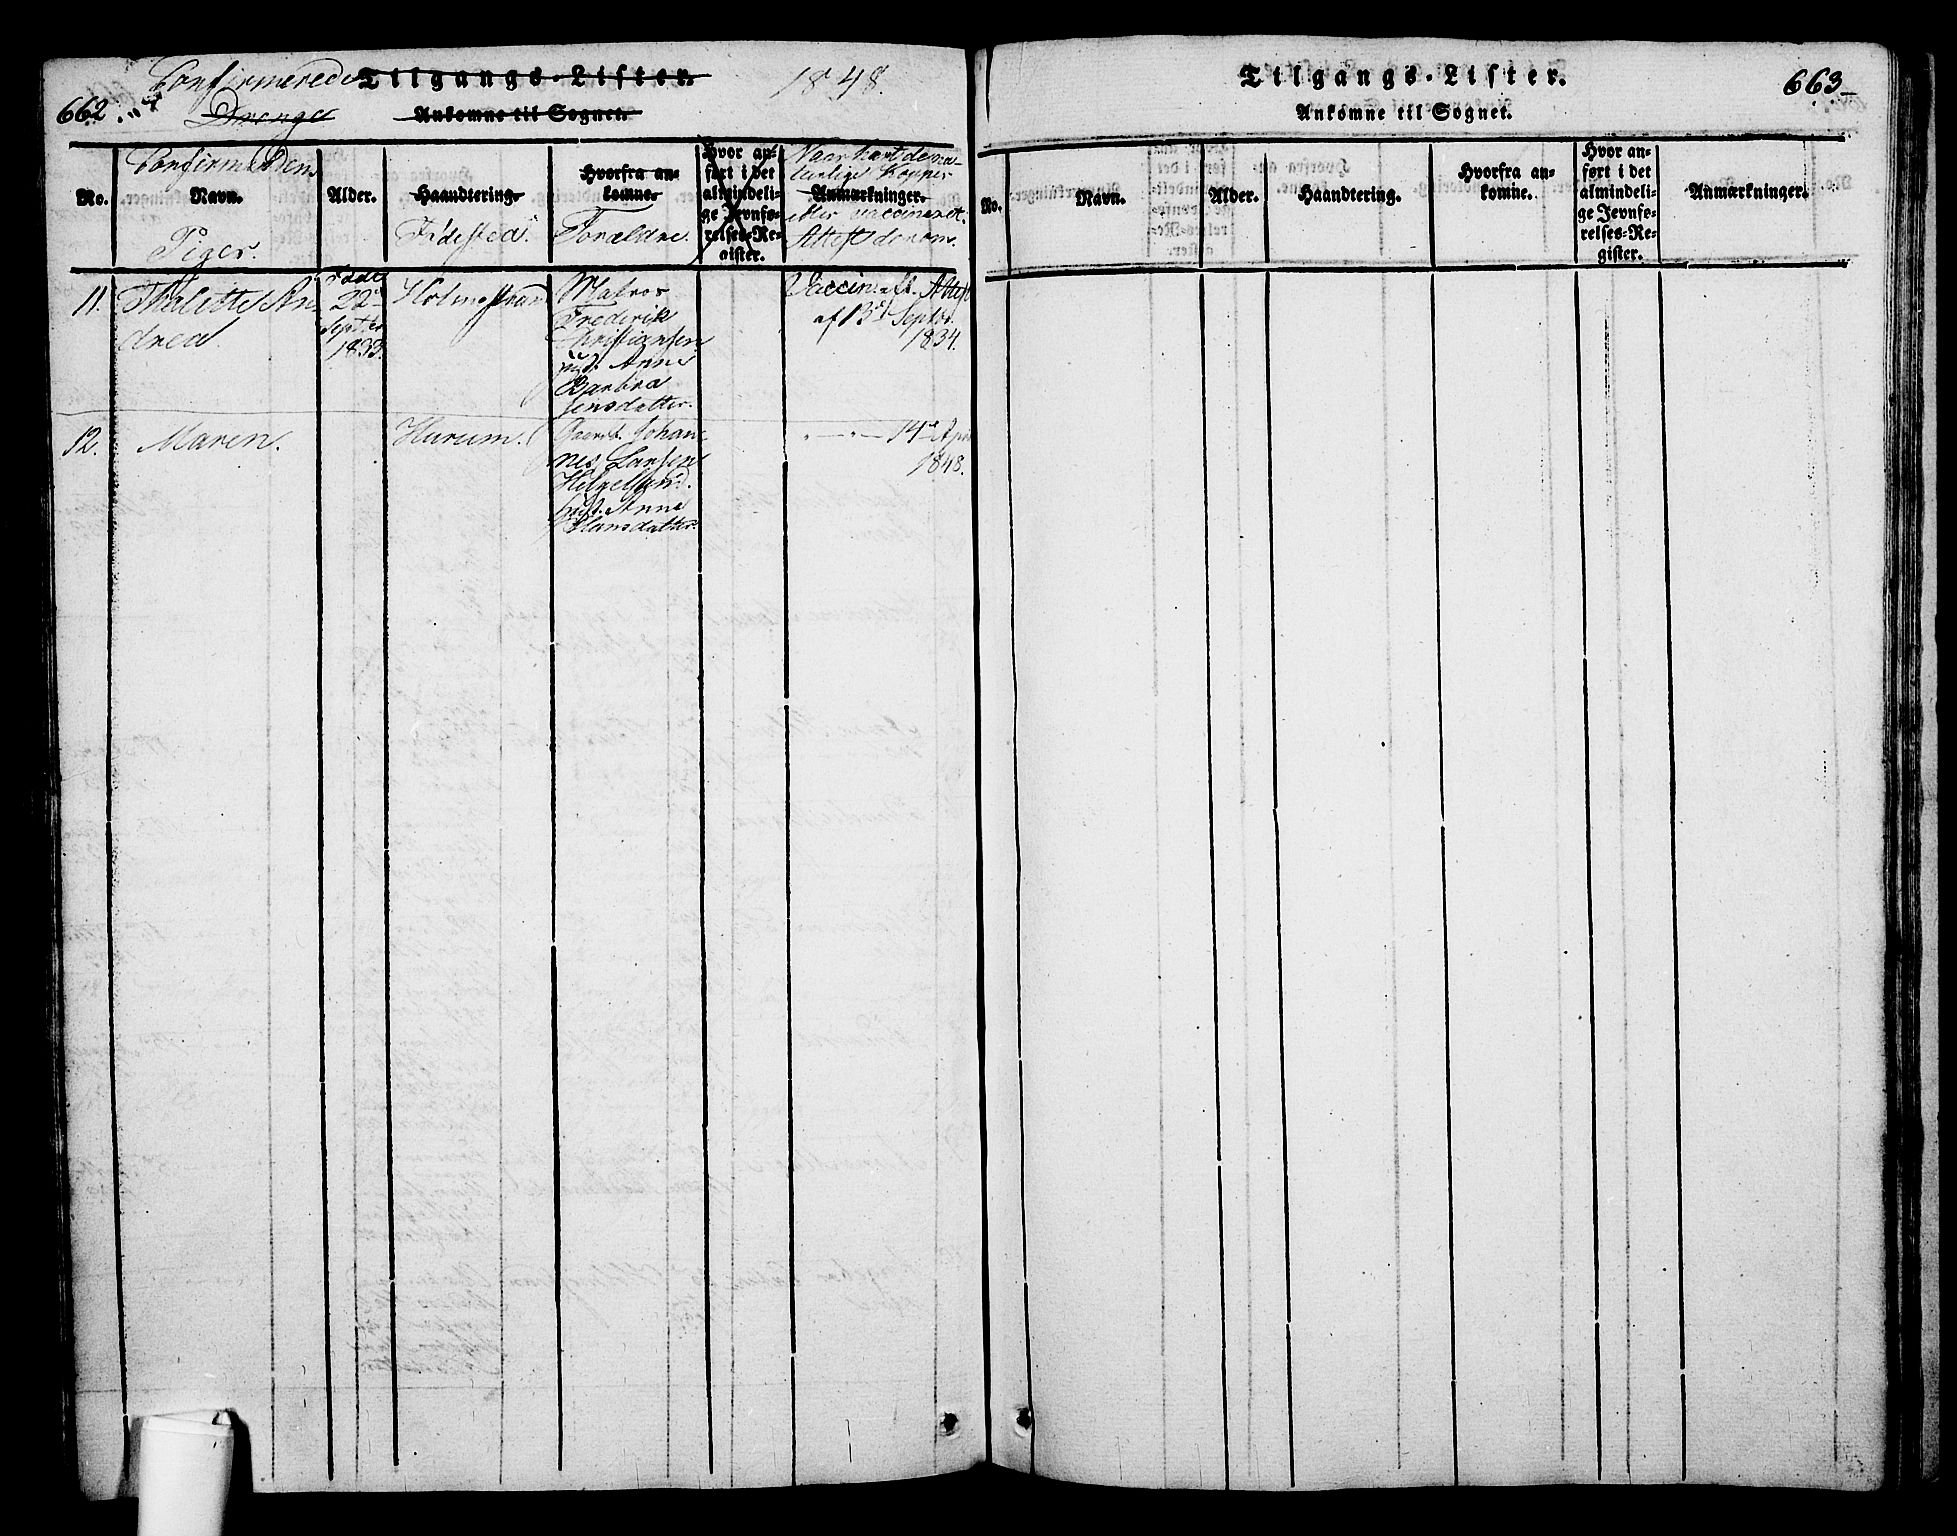 662
Confirmerede
Drenge
Tilgangs-Lister.
Ankomne til Sognet.
1848.
No.
Confirmandens
Navn.
Piger.
Alder.
Haandtering.
Fødested.
Hvorfra an-
komne.
Forældre.
Hvor an-
ført i det
almindeli-
ge Jevnfø-
relses-Re-
gister.
Naar havt de na-
turlige Kopper
Anmærkninger.
eller vaccineret.
Attest derom.
11.
Thalette An-
drea
Født
22de
Septbr
1833.
Holmestrand
Matros
Frederik
Christiansen
Anne
Barbra
Jensdatter.
Vaccin. Attest
af 13de Septbr.
1834.
12.
Maren.
Hurum.
Gaardb. Johan-
nes Larsen
Anne
Hansdatter.
" — " — 14de Apr
1848.
Tilgangs-Lister.
663
Ankomne til Sognet.
No.
Navn.
Alder.
Haandtering.
Hvorfra an-
komne.
Hvor an-
ført i det
almindeli-
ge Jevnfø-
relses-Re-
gister.
Anmærkninger.